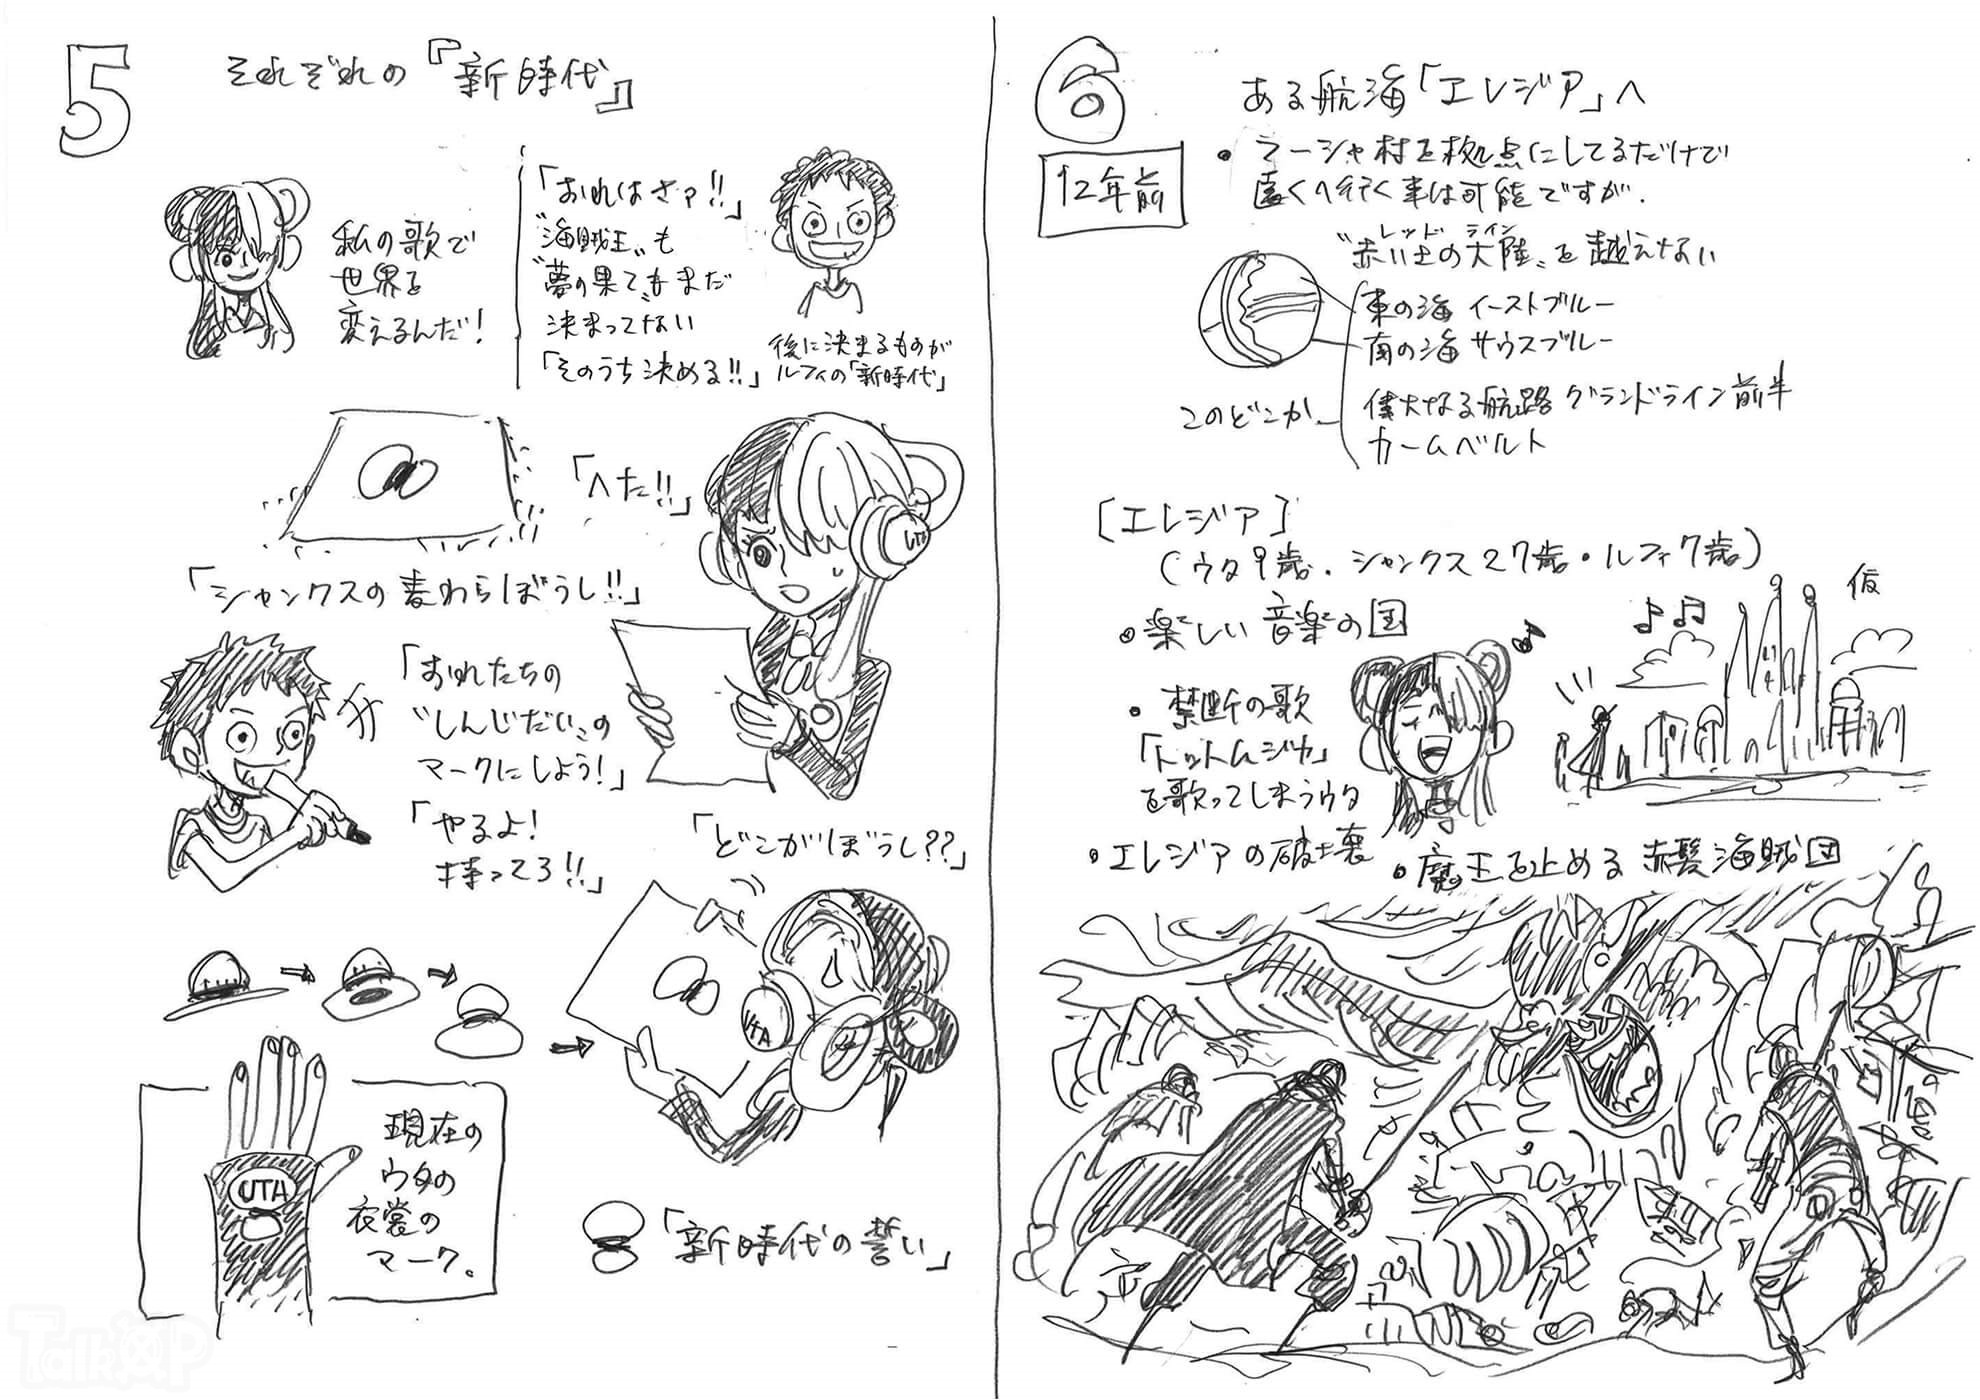 5
それぞれの『新時代』
私の歌で
世界を
変えるんだ!
「おれはさァ!!」
"海賊王"も
"夢の果て"もまだ
決まってない
「そのうち決める!!」
後に決まるものが
ルフィの「新時代」
「へた!!」
UTA
「シャンクスの麦わらぼうし!!」
「おれたちの
"しんじだい"の
マークにしよう!」
「やるよ!
持ってろ!!」
「どこがぼうし??」
UTA
UTA
現在の
ウタの
衣裳の
マーク。
「新時代の誓い」
6
ある航海「エレジア」へ
12年前
・フーシャ村を拠点にしてるだけで
遠くへ行く事は可能ですが、
レッド ライン
"赤い土の大陸"を越えない
東の海 イーストブルー
南の海 サウスブルー
偉大なる航路 グランドライン前半
カームベルト
このどこか
[エレジア]
(ウタ9歳・シャンクス27歳・ルフィ7歳)
仮
・楽しい音楽の国
・禁断の歌
「トットムジカ」
を歌ってしまうウタ
・エレジアの破壊
・魔王を止める赤髪海賊団
Talk